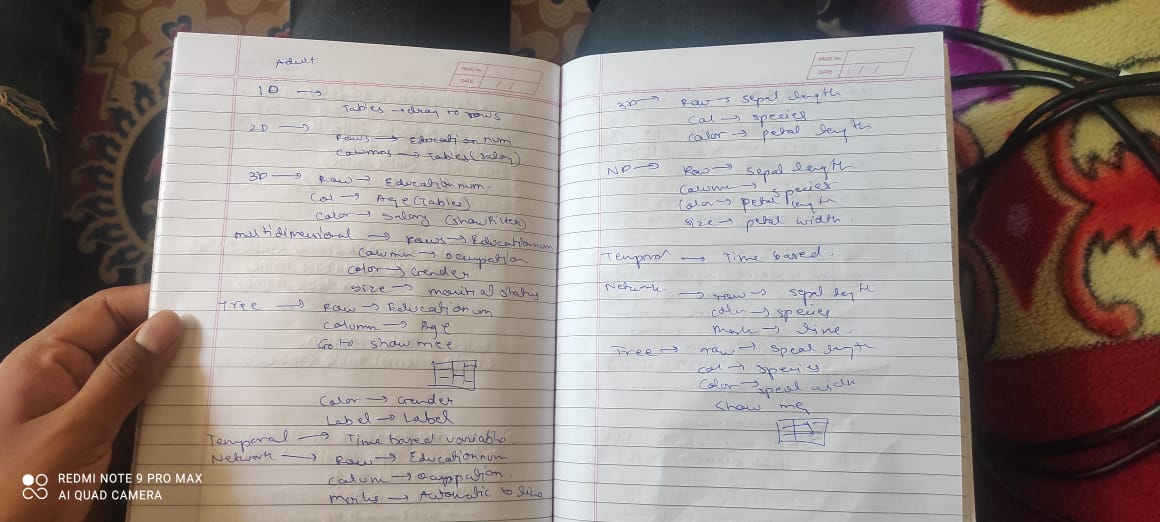 PAGE No.
DATE / /
Adult
1D →
Tables → drag to rows
2D →
Rows → Education num
Columns → Tables (Salary)
3D → Row → Education num.
Col → Age (Tables)
Color → Salary (show filter)
multidimensional → rows → Educationnum
Column → occupation
Color → Gender
Size → marital status
Tree → Row → Education num
Column → Age
Go to show mee
Color → Gender
Label → Label
Temporal → Time based variable.
Network → Row → Educationnum
Column →
Marks → Automatic to line
PAGE No.
DATE / /
3D → Row → Sepal length
Col → species
Color → petal length
ND → Row → sepal length
Column → species
Color → petal length
Size → petal width.
→ Time based.
Network. → row → sepal length
→ species
Mark → line.
Tree → row → speal length
Col → species
Color → speal width
Show me
REDMI NOTE 9 PRO MAX
AI QUAD CAMERA